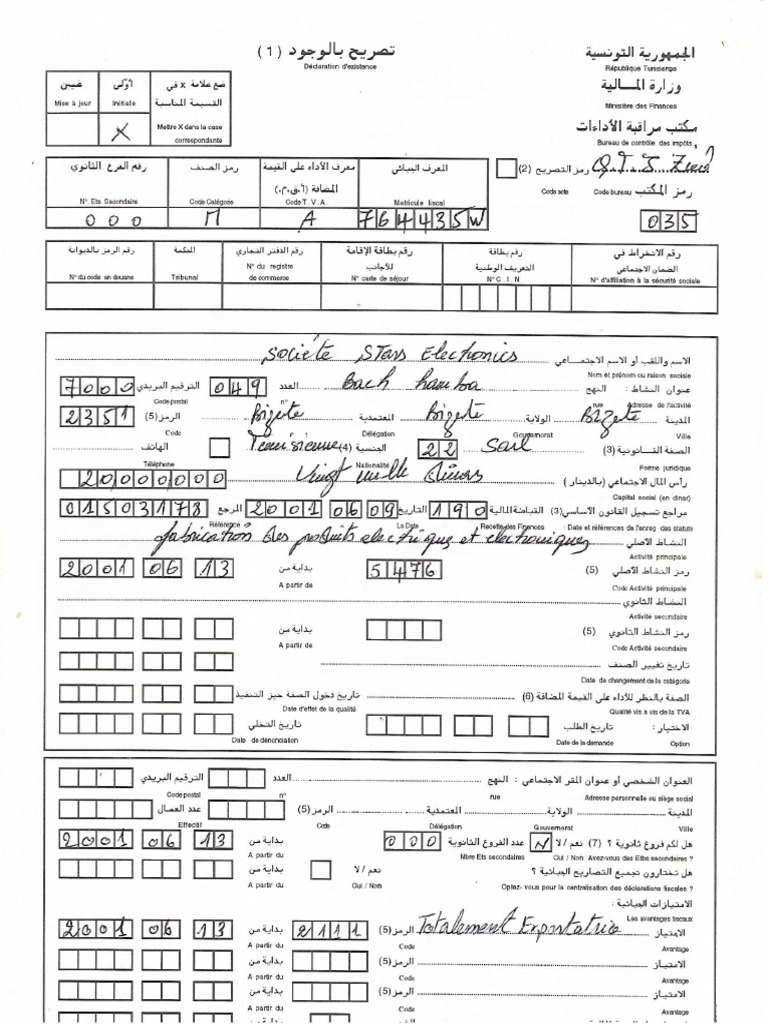 الجمهورية التونسية
République Tunisienne
وزارة المالية
Ministère des Finances
مكتب مراقبة الأداءات
Bureau de contrôle des impôts
تصريح بالوجود (1)
Déclaration d'existence
ضع علامة x في القسيمة المناسبة أولي تحيين
Mettre X dans la case correspondante Initiale Mise à jour
X
رمز التصريح (2)
Code acte
رمز المكتب
Code bureau
035
المعرف الجبائي معرف الأداء على القيمة المضافة (أ.ق.م.) رمز الصنف رقم الفرع الثانوي
Matricule fiscal Code T.V.A. Code Catégorie N°. Ets Secondaire
764435W A M 000
رقم الانخراط في الضمان الاجتماعي رقم بطاقة التعريف الوطنية رقم بطاقة الإقامة للأجانب رقم الدفتر التجاري المحكمة رقم الرمز بالديوانة
N° d'affiliation à la sécurité sociale N° C.I.N. N° carte de séjour N° du registre de commerce Tribunal N° du code en douane
الاسم واللقب أو الاسم الاجتماعي Société Stars Electronics
Nom et prénom ou raison sociale
عنوان النشاط : النهج Bach hamba العدد 049 الترقيم البريدي 7000
Adresse de l'activité rue n° Code postal
المدينة Bizerte الولاية Bizerte المعتمدية Bizerte الرمز (5) 2351
Ville Gouvernorat Délégation Code
الصفة القانونية (3) sarl 22 الجنسية (4) Tunisienne الهاتف
Forme juridique Nationalité Téléphone
رأس المال الاجتماعي (بالدينار) Vingt mille dinars 20000000
Capital social (en dinar)
مراجع تسجيل القانون الأساسي (3) القباضة المالية 190 التاريخ 2001 06 09 المرجع 01503178
Date et références de l'enreg. des statuts Recette des Finances La Date Référence
النشاط الأصلي fabrication des produits electriques et electroniques
Activité principale
رمز النشاط الأصلي (5) 5476 بداية من 2001 06 13
Code Activité principale A partir de
النشاط الثانوي
Activité secondaire
رمز النشاط الثانوي (5) بداية من
Code Activité secondaire A partir de
تاريخ تغيير الصنف
Date de changement de la catégorie
الصفة بالنظر للأداء على القيمة المضافة (6) تاريخ دخول الصفة حيز التنفيذ
Qualité vis à vis de la TVA Date d'effet de la qualité
الاختيار : تاريخ الطلب تاريخ التخلي
Option Date de la demande Date de dénonciation
العنوان الشخصي أو عنوان المقر الاجتماعي : النهج العدد الترقيم البريدي
Adresse personnelle ou siège social rue n° Code postal
المدينة الولاية المعتمدية الرمز (5) عدد العمال
Ville Gouvernorat Délégation Code Effectif
هل لكم فروع ثانوية ؟ (7) نعم / لا N عدد الفروع الثانوية 000 بداية من 2001 06 13
Avez-vous des Etbs secondaires ? Oui / Non Nbre Ets secondaires A partir du
هل تختارون تجميع التصاريح الجبائية ؟ نعم / لا بداية من
Optez- vous pour la centralisation des déclarations fiscales ? Oui / Non A partir du
الامتيازات الجبائية :
Les avantages fiscaux
الامتياز Totalement Exportatrice الرمز (5) 2111 بداية من 2001 06 13
Avantage Code A partir du
الامتياز الرمز (5) بداية من
Avantage Code A partir du
الامتياز الرمز (5) بداية من
Avantage Code A partir du